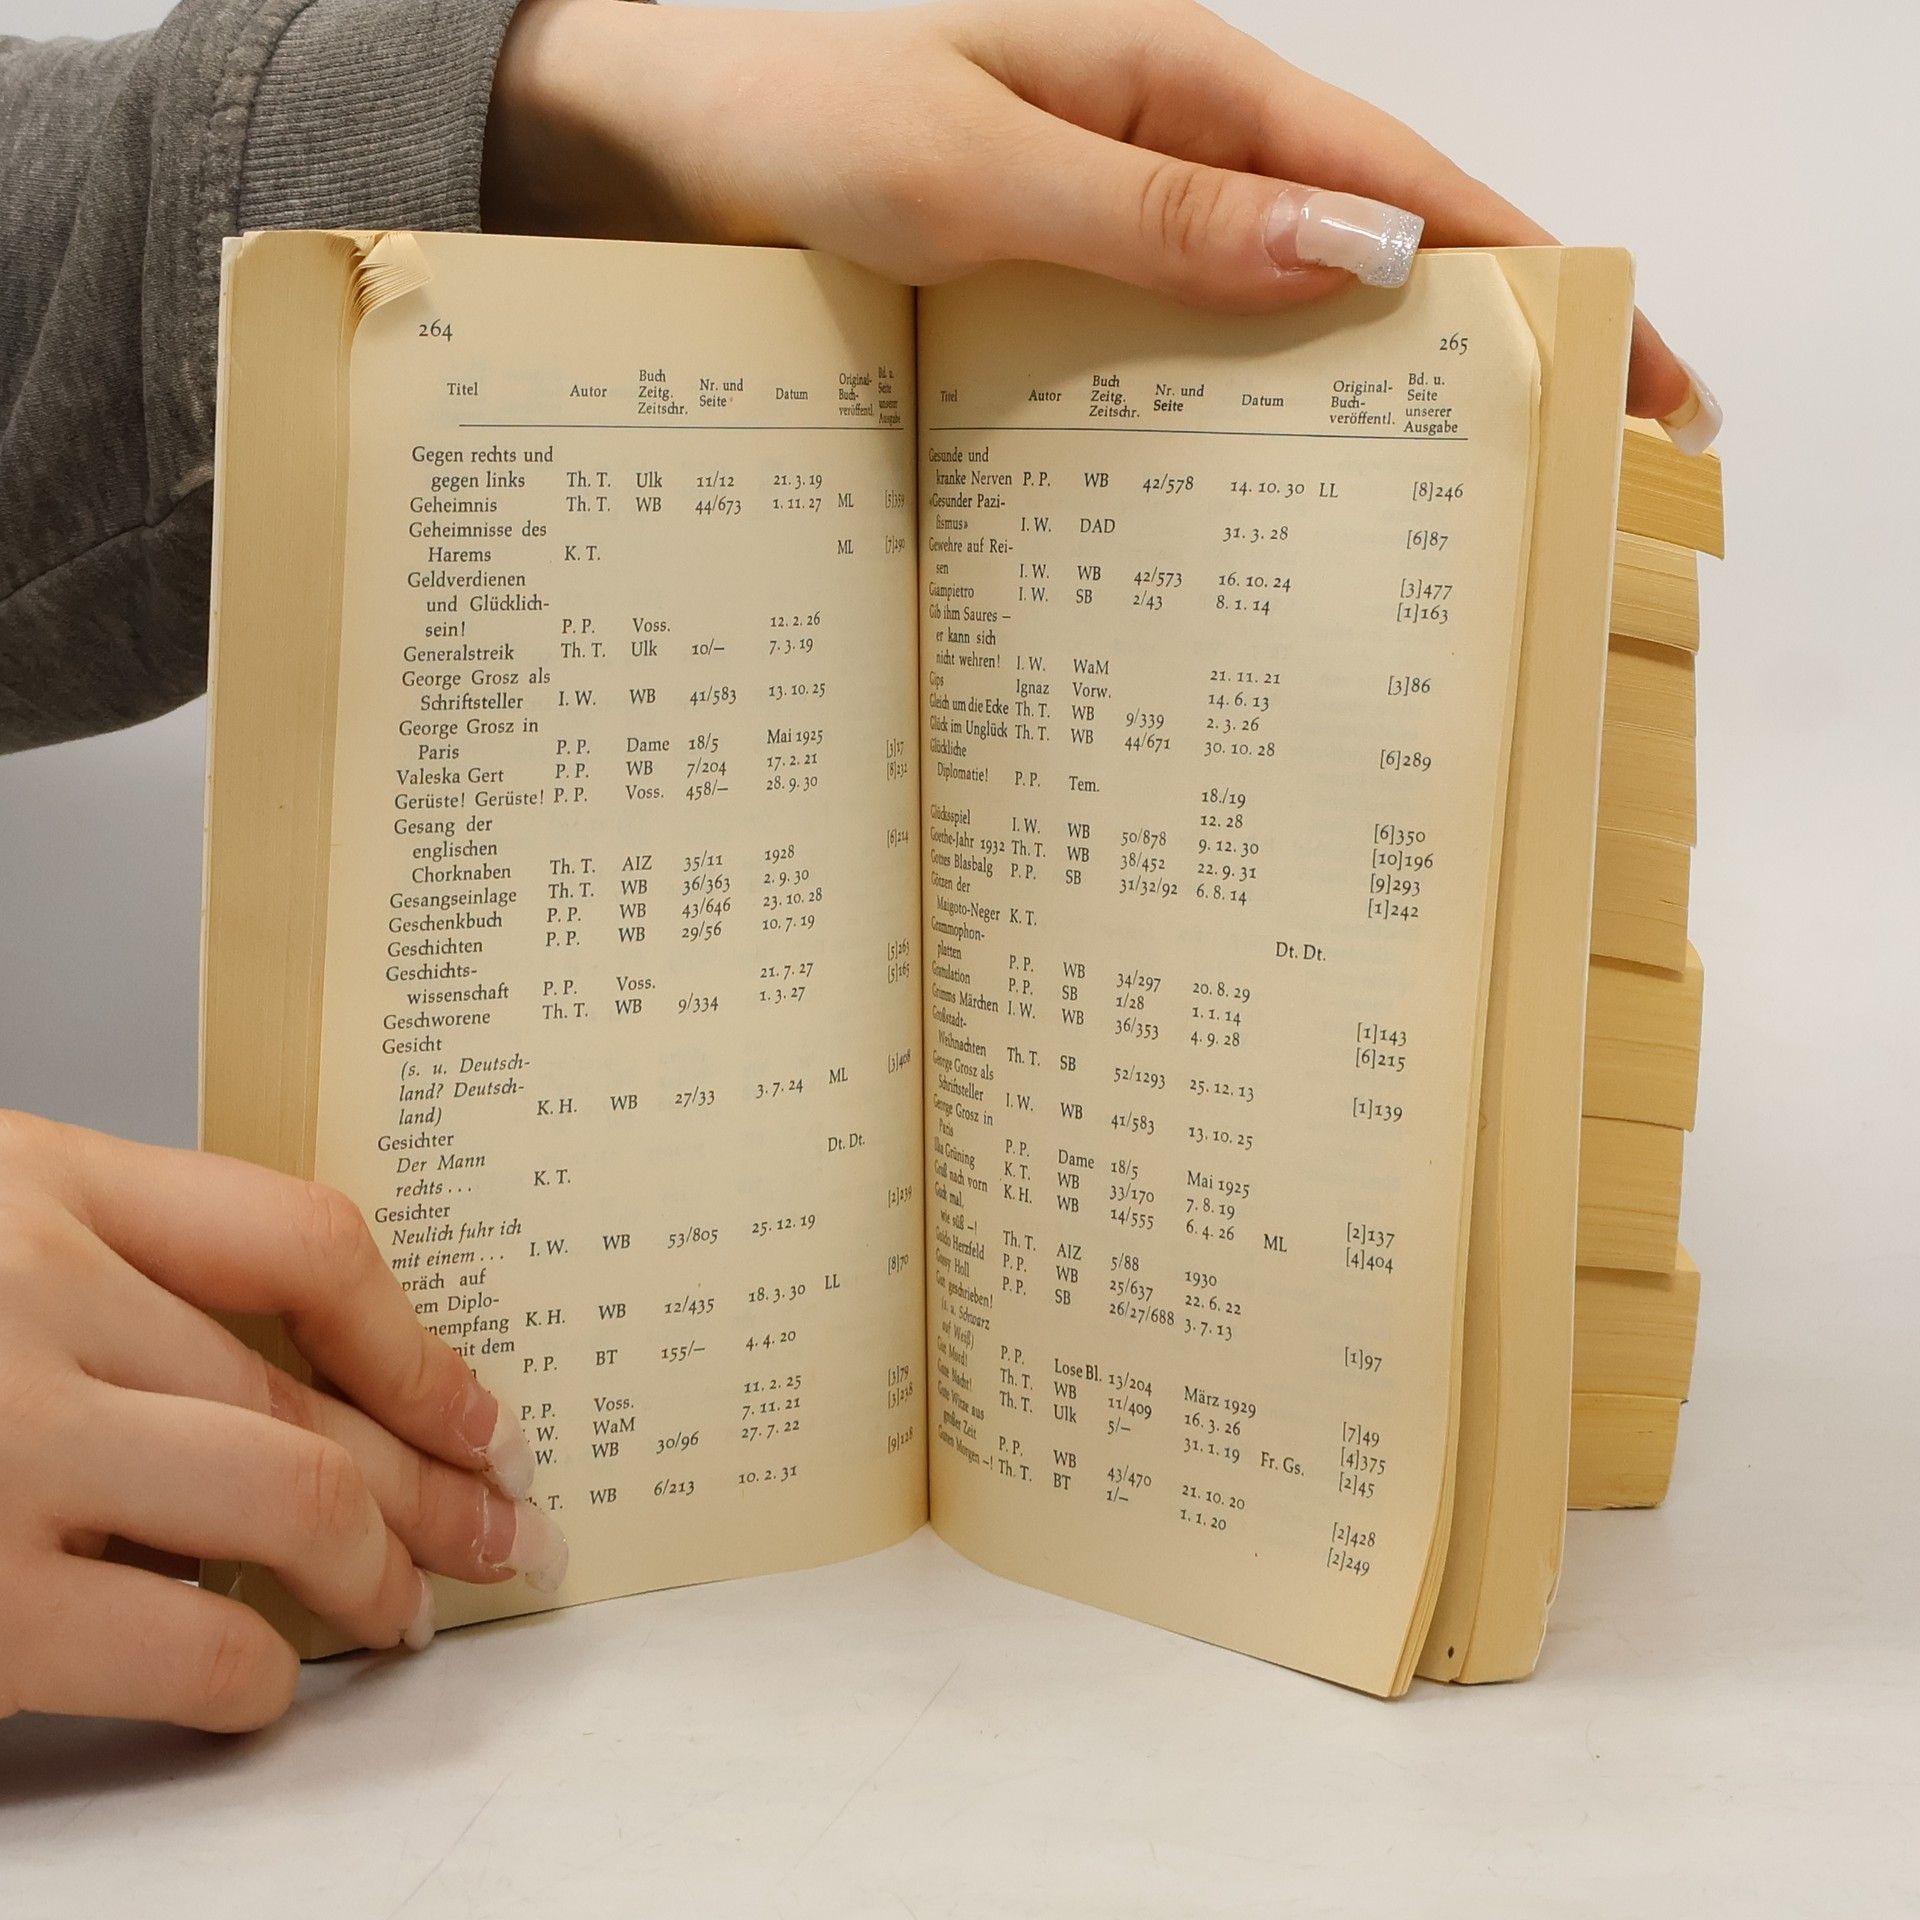 264
Titel Autor Buch Zeitg. Zeitschr. Nr. und Seite Datum Original-Buch-veröffentl. Bd. u. Seite unserer Ausgabe
Gegen rechts und
gegen links Th. T. Ulk 11/12 21. 3. 19
Geheimnis Th. T. WB 44/673 1. 11. 27 ML [5]359
Geheimnisse des
Harems K. T. ML [7]290
Geldverdienen
und Glücklich-
sein! P. P. Voss. 12. 2. 26
Generalstreik Th. T. Ulk 10/– 7. 3. 19
George Grosz als
Schriftsteller I. W. WB 41/583 13. 10. 25
George Grosz in
Paris P. P. Dame 18/5 Mai 1925
Valeska Gert P. P. WB 7/204 17. 2. 21 [3]17
Gerüste! Gerüste! P. P. Voss. 458/– 28. 9. 30 [8]232
Gesang der
englischen
Chorknaben Th. T. AIZ 35/11 1928 [6]214
Gesangseinlage Th. T. WB 36/363 2. 9. 30
Geschenkbuch P. P. WB 43/646 23. 10. 28
Geschichten P. P. WB 29/56 10. 7. 19
Geschichts-
wissenschaft P. P. Voss. 21. 7. 27 [5]263
Geschworene Th. T. WB 9/334 1. 3. 27 [5]165
Gesicht
(s. u. Deutsch-
land? Deutsch-
land) K. H. WB 27/33 3. 7. 24 ML [3]408
Gesichter
Der Mann
rechts . . . K. T. Dt. Dt.
Gesichter
Neulich fuhr ich
mit einem . . . I. W. WB 53/805 25. 12. 19 [2]239
präch auf
em Diplo-
nempfang K. H. WB 12/435 18. 3. 30 LL [8]70
mit dem
P. P. BT 155/– 4. 4. 20
P. P. Voss. 11. 2. 25 [3]79
W. WaM 7. 11. 21 [3]238
W. WB 30/96 27. 7. 22
T. WB 6/213 10. 2. 31 [9]128
265
Titel Autor Buch Zeitg. Zeitschr. Nr. und Seite Datum Original-Buch-veröffentl. Bd. u. Seite unserer Ausgabe
Gesunde und
kranke Nerven P. P. WB 42/578 14. 10. 30 LL [8]246
«Gesunder Pazi-
fismus» I. W. DAD 31. 3. 28 [6]87
Gewehre auf Rei-
sen I. W. WB 42/573 16. 10. 24 [3]477
Giampietro I. W. SB 2/43 8. 1. 14 [1]163
Gib ihm Saures –
er kann sich
nicht wehren! I. W. WaM 21. 11. 21 [3]86
Gips Ignaz Vorw. 14. 6. 13
Gleich um die Ecke Th. T. WB 9/339 2. 3. 26
Glück im Unglück Th. T. WB 44/671 30. 10. 28 [6]289
Glückliche
Diplomatie! P. P. Tem. 18./19
12. 28 [6]350
Glücksspiel I. W. WB 50/878 9. 12. 30 [10]196
Goethe-Jahr 1932 Th. T. WB 38/452 22. 9. 31 [9]293
Gottes Blasbalg P. P. SB 31/32/92 6. 8. 14 [1]242
Götzen der
Maigoto-Neger K. T. Dt. Dt.
Grammophon-
platten P. P. WB 34/297 20. 8. 29
Gratulation P. P. SB 1/28 1. 1. 14 [1]143
Grimms Märchen I. W. WB 36/353 4. 9. 28 [6]215
Großstadt-
Weihnachten Th. T. SB 52/1293 25. 12. 13 [1]139
George Grosz als
Schriftsteller I. W. WB 41/583 13. 10. 25
George Grosz in
Paris P. P. Dame 18/5 Mai 1925
Ilka Grüning K. T. WB 33/170 7. 8. 19 [2]137
Gruß nach vorn K. H. WB 14/555 6. 4. 26 ML [4]404
Guck mal,
wie süß –! Th. T. AIZ 5/88 1930
Guido Herzfeld P. P. WB 25/637 22. 6. 22
Gussy Holl P. P. SB 26/27/688 3. 7. 13 [1]97
Gut geschrieben!
(s. u. Schwarz
auf Weiß) P. P. Lose Bl. 13/204 März 1929 [7]49
Gut Mord! Th. T. WB 11/409 16. 3. 26 [4]375
Gute Nacht! Th. T. Ulk 5/– 31. 1. 19 Fr. Gs. [2]45
Gute Witze aus
großer Zeit P. P. WB 43/470 21. 10. 20 [2]428
Guten Morgen –! Th. T. BT 1/– 1. 1. 20 [2]249